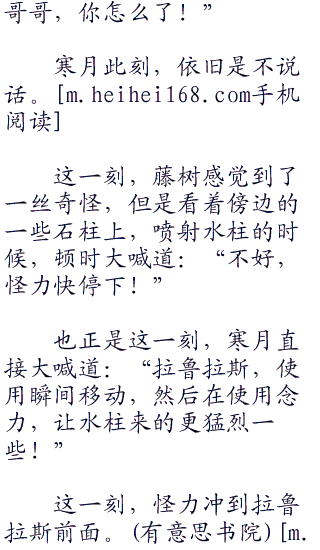 哥哥，你怎么了！”
寒月此刻，依旧是不说
话。[m.heihei168.com手机
阅读]
这一刻，藤树感觉到了
一丝奇怪，但是看着傍边的
一些石柱上，喷射水柱的时
候，顿时大喊道：“不好，
怪力快停下！”
也正是这一刻，寒月直
接大喊道：“拉鲁拉斯，使
用瞬间移动，然后在使用念
力，让水柱来的更猛烈一
些！”
这一刻，怪力冲到拉鲁
拉斯前面。(有意思书院)[m.